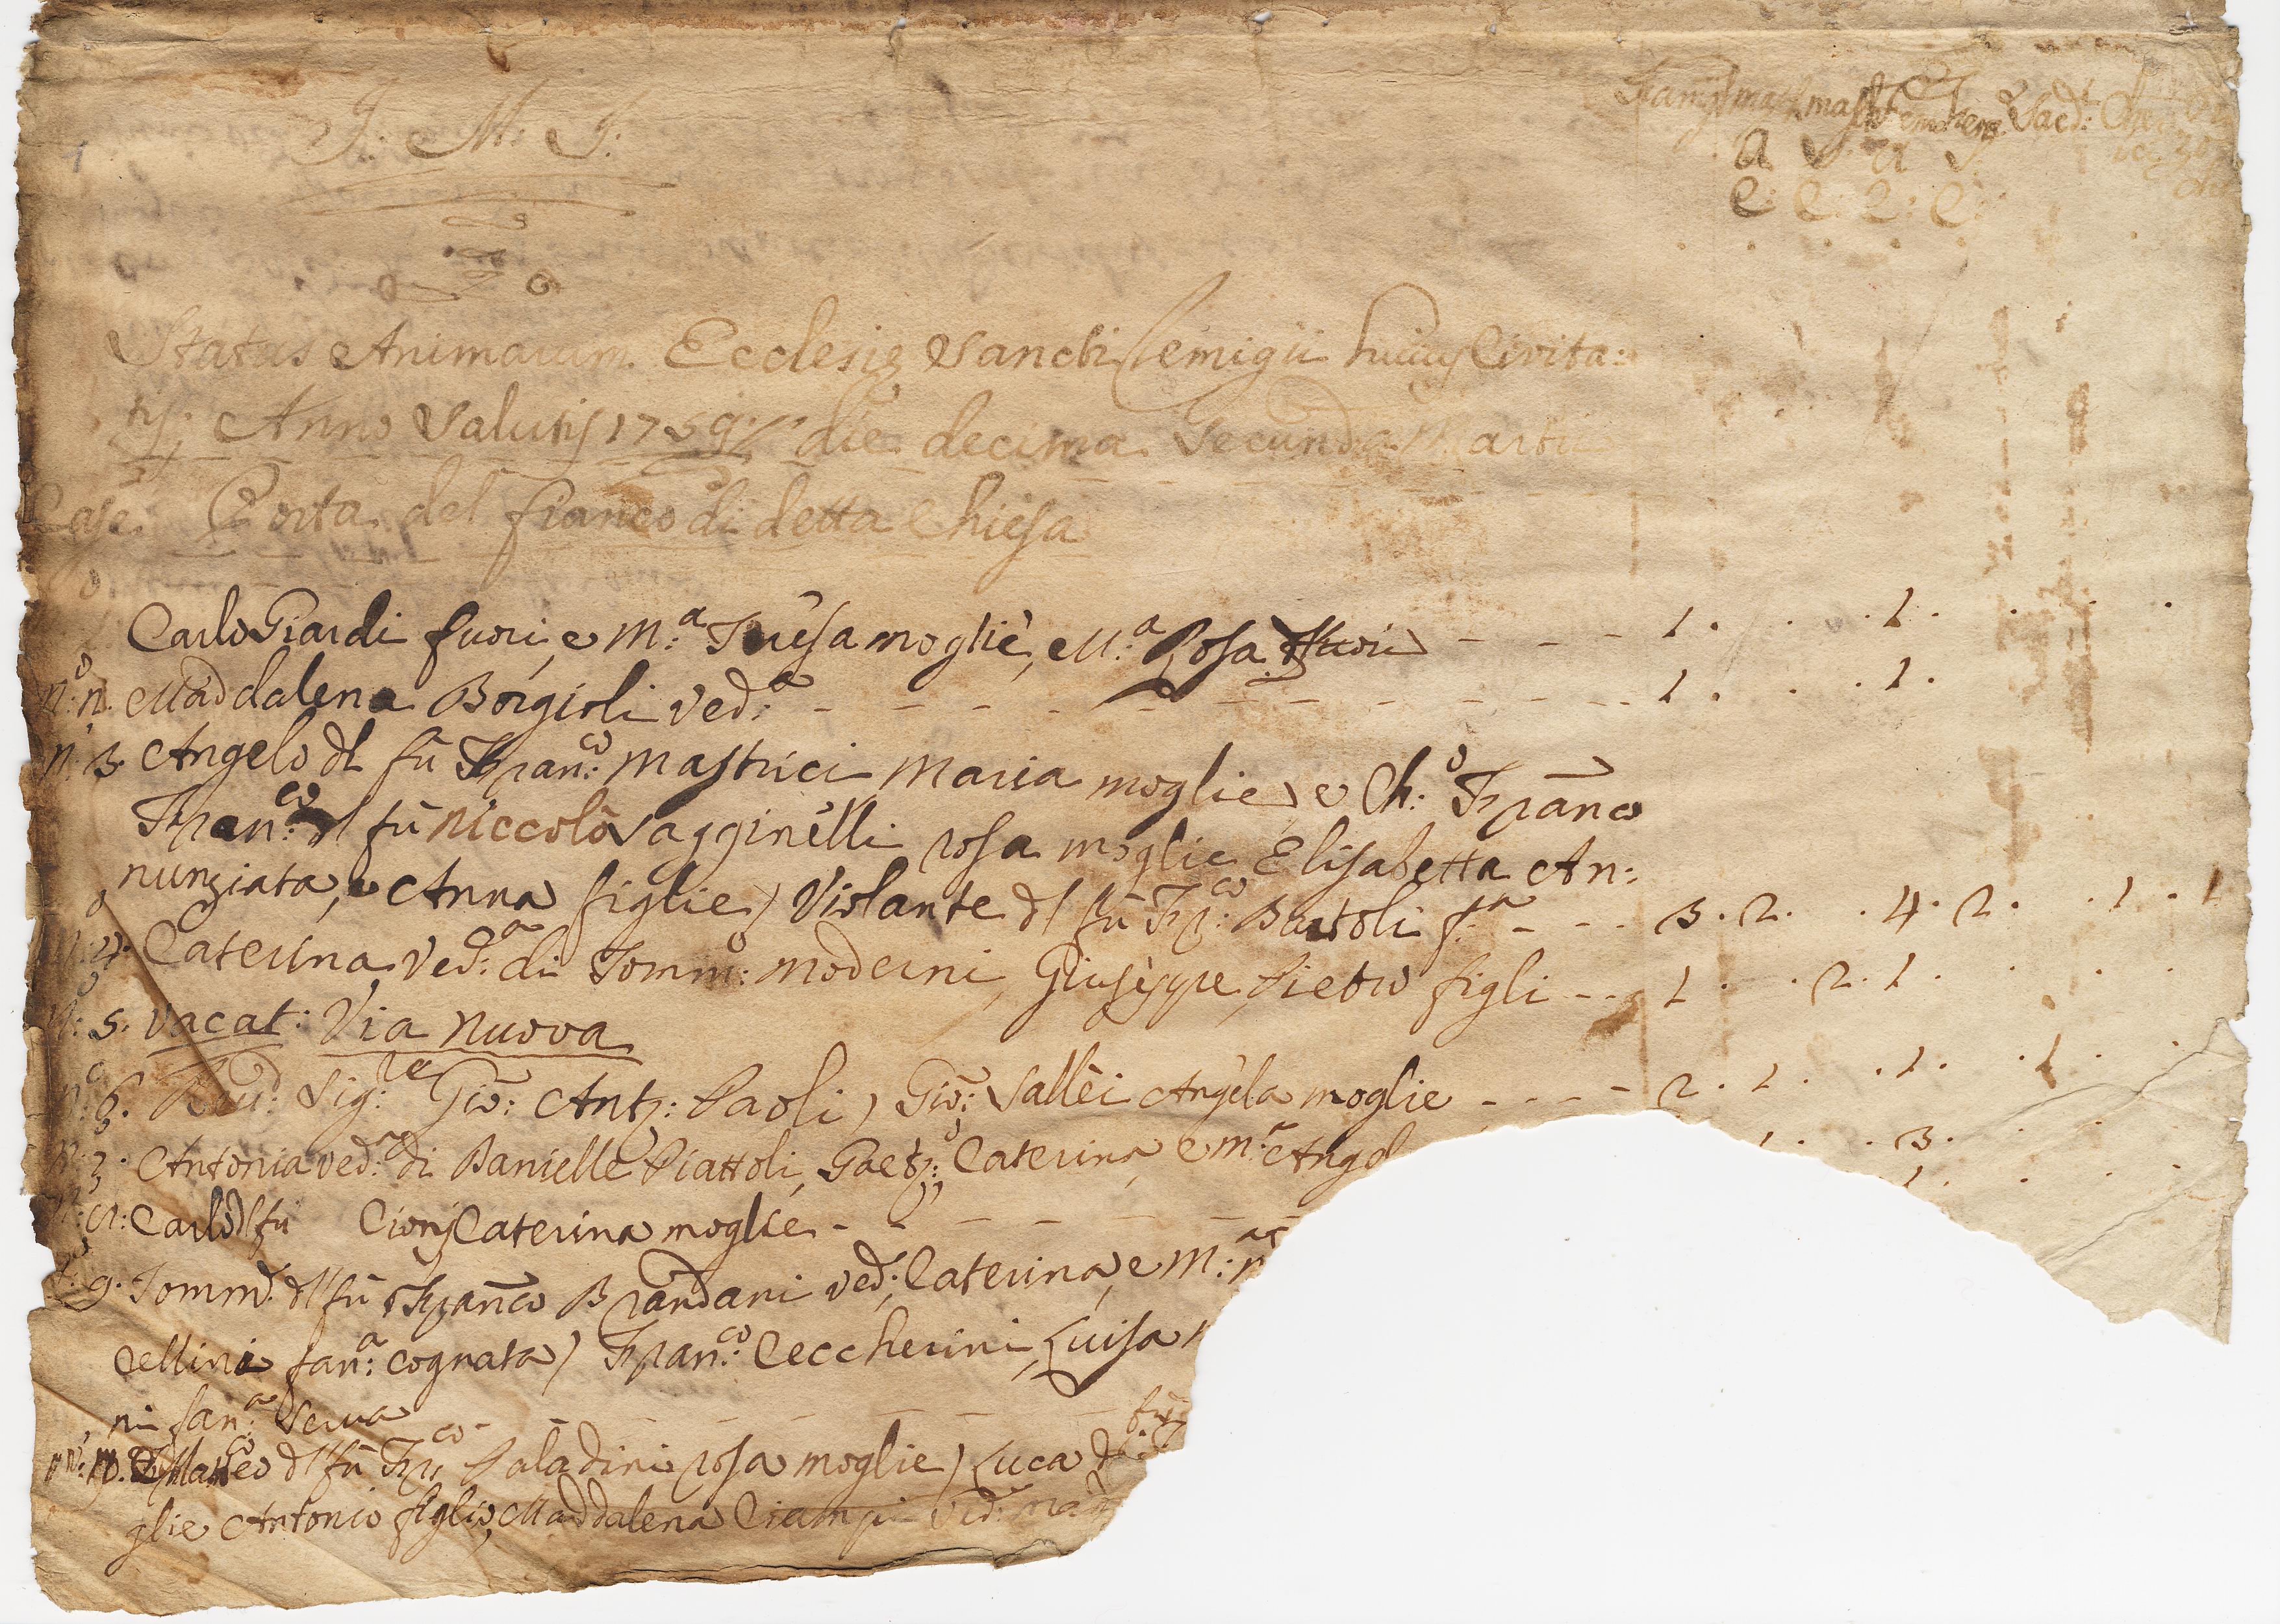 J: M: J:
Famigl masch masch Femine Sacd:
a S: a S:
C: C: C: C:
Status Animarum Ecclesię Sancti Remigii huius Civita:
tis; Anno Salutis 1759: die decima Secunda Martii
Case Porta del fianco di detta Chiesa
Carlo Giardi fuori, e M:a Teresa moglie, e M:a Rosa - - - 1 . . . 1 .
n:o 2. Maddalena Borgioli ved:a - - - 1 . . . 1 .
n:o 3. Angelo dl fù Fran:co Mastrici Maria moglie, e Ch:o Franco
Fran:co dl fù Niccolò Sagginelli rosa moglie Elisabetta An:
nunziata, e Anna figlie) Violante dl fù Fr:co Bartoli f:a - - - 3 . 2 . . 4 . 2 . . 1 . 1
n:o 4. Caterina ved:a di Tomm:o Moderni, Giuseppe, Pietro figli - - 1 . . 2 . 1 .
n:o 5. vacat: Via nuova
n:o 6. Rev:d Sig:re Gio: Ant: Paoli) Gio: Sallèi Angela moglie - - - - 2 . 1 . . 1 . . 1 .
n:o 7. Antonia ved:a di Danielle Piattoli, Gaet:o Caterina, e M:a Angel 1 . . 3 .
n: 8: Carlo dl fù Cionj Caterina moglie - - - -
n:o 9. Tomm:o dl fù Franco Brandani ved:, Caterina, e M:a
Cellini fan:a cognata) Fran:co Ceccherini, Luisa
ni fan:a Serva
n:o 10. Matteo dl fù Fr:co Paladini rosa moglie) Luca dl fù
glie Antonio figlio, Maddalena Ciampi ved: